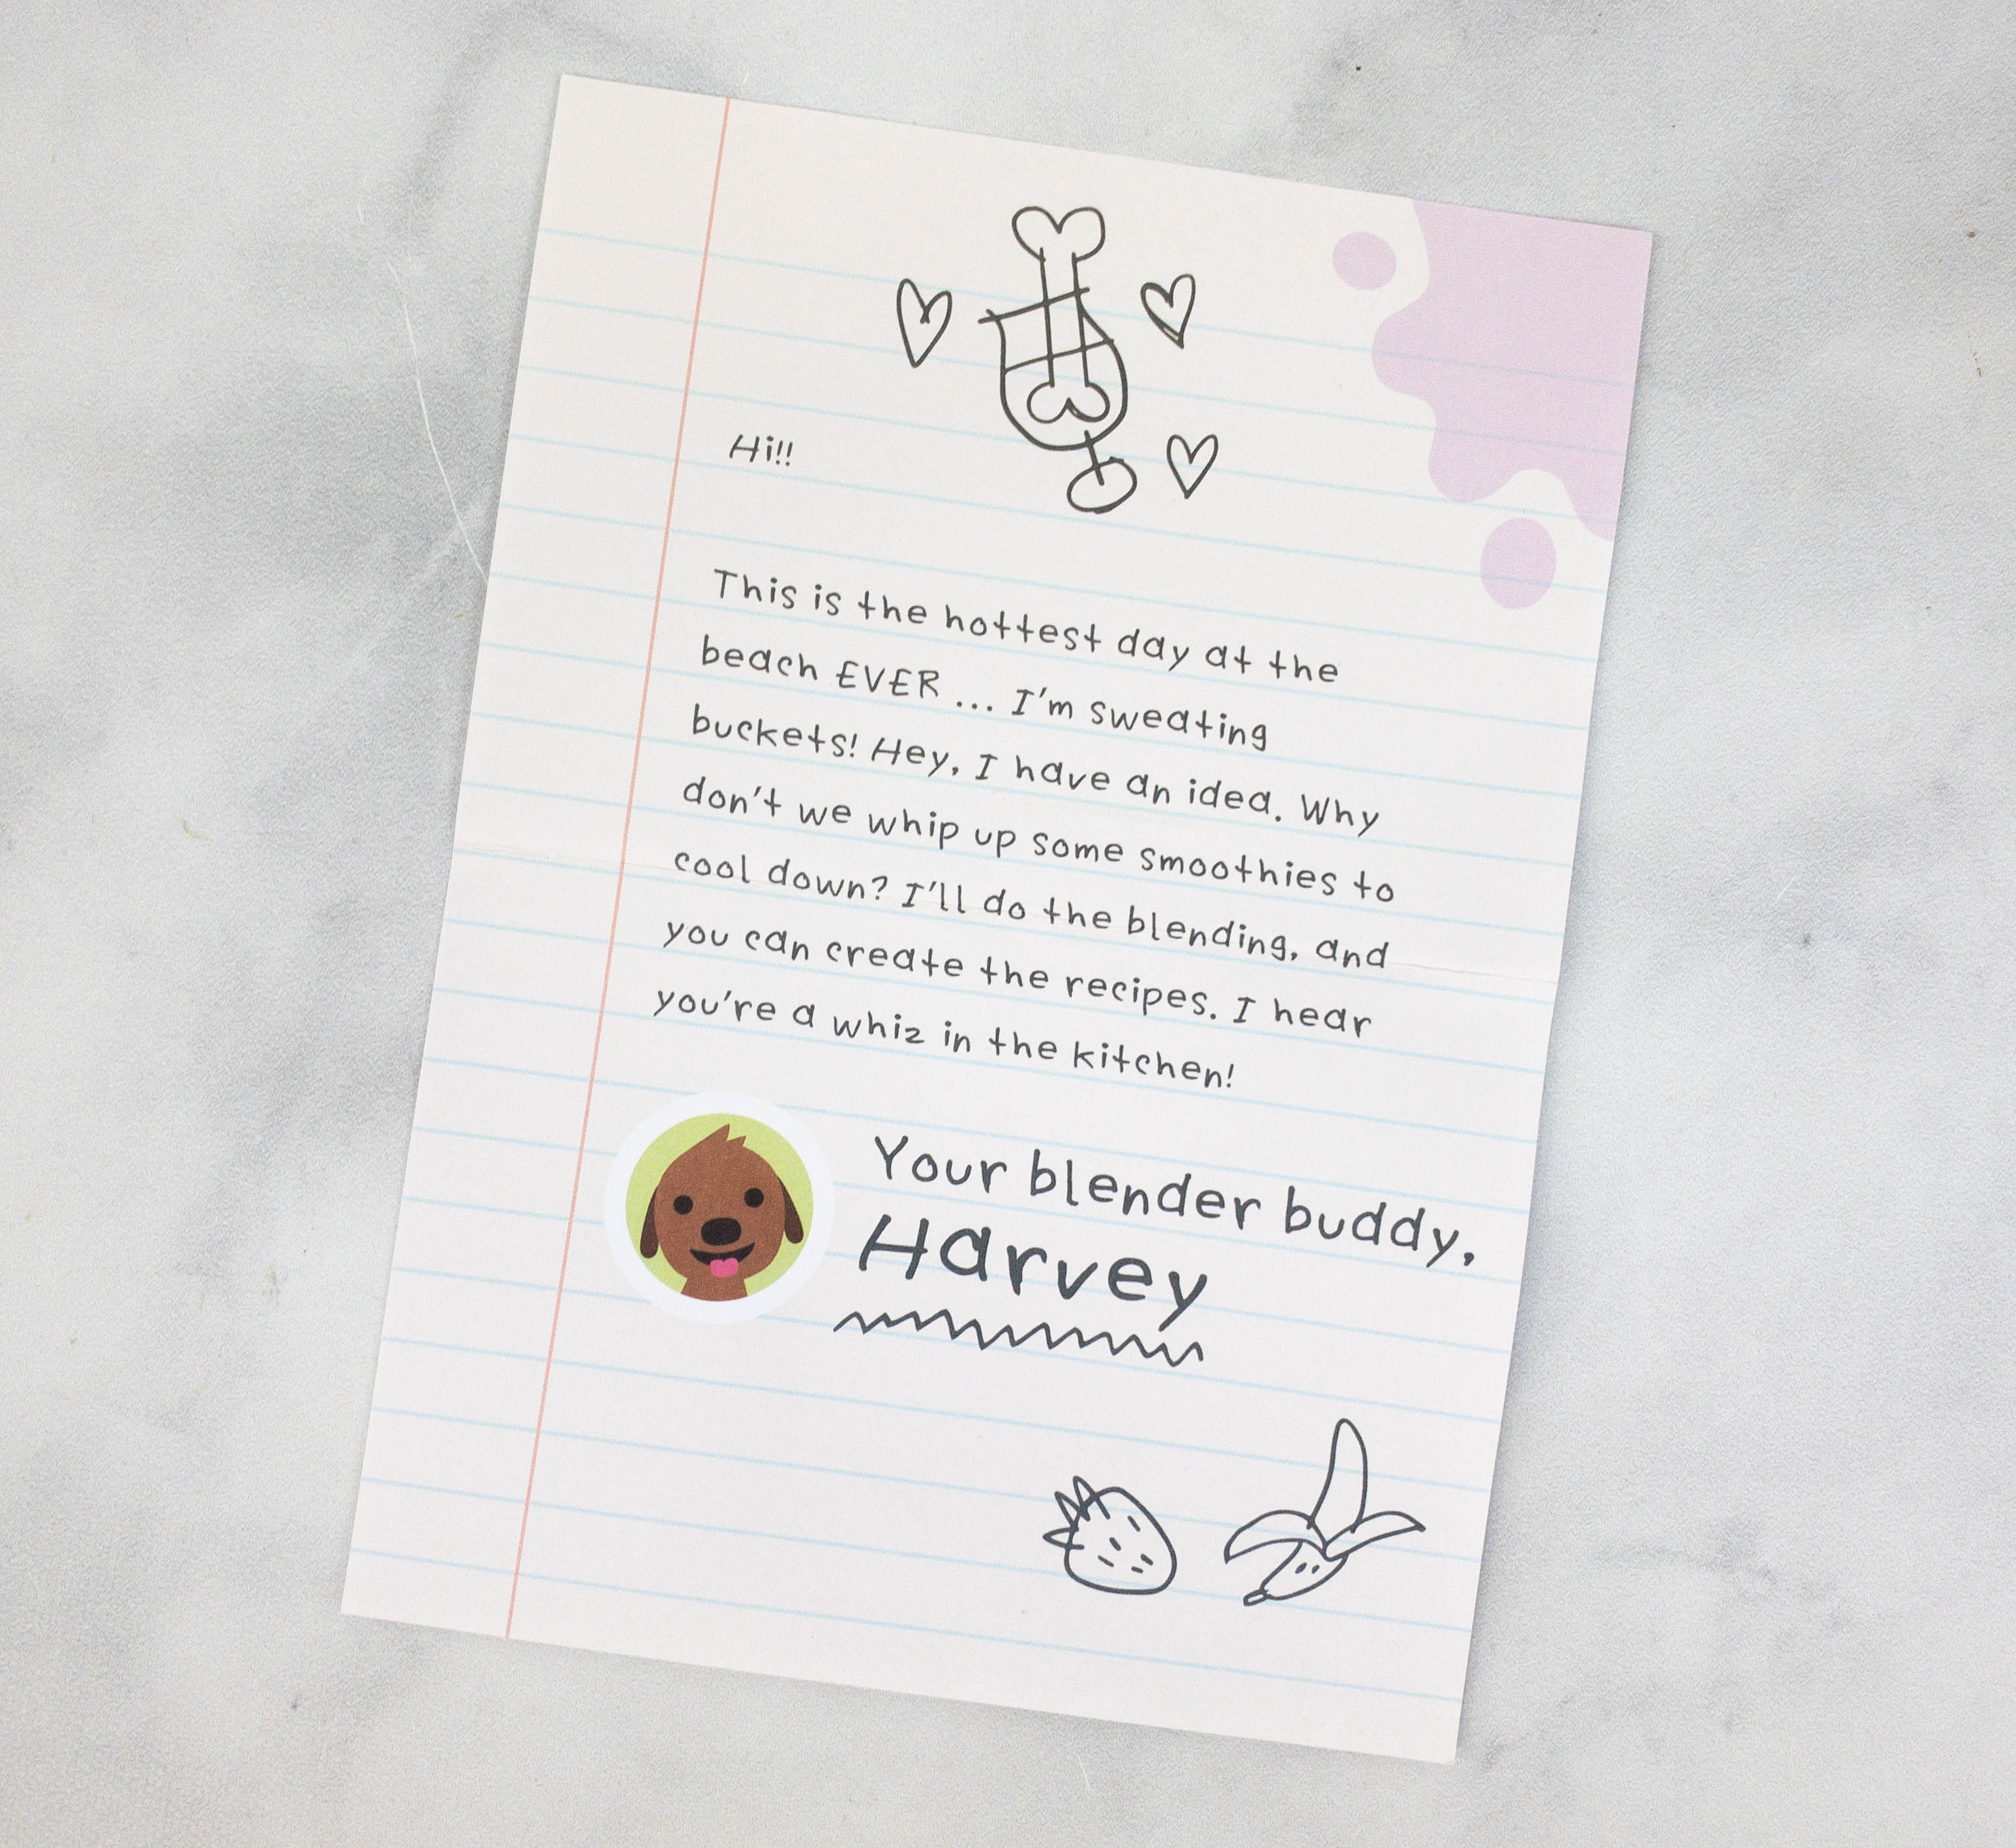 Hi!!
This is the hottest day at the
beach EVER ... I'm sweating
buckets! Hey, I have an idea. Why
don't we whip up some smoothies to
cool down? I'll do the blending, and
you can create the recipes. I hear
you're a whiz in the kitchen!
Your blender buddy,
Harvey